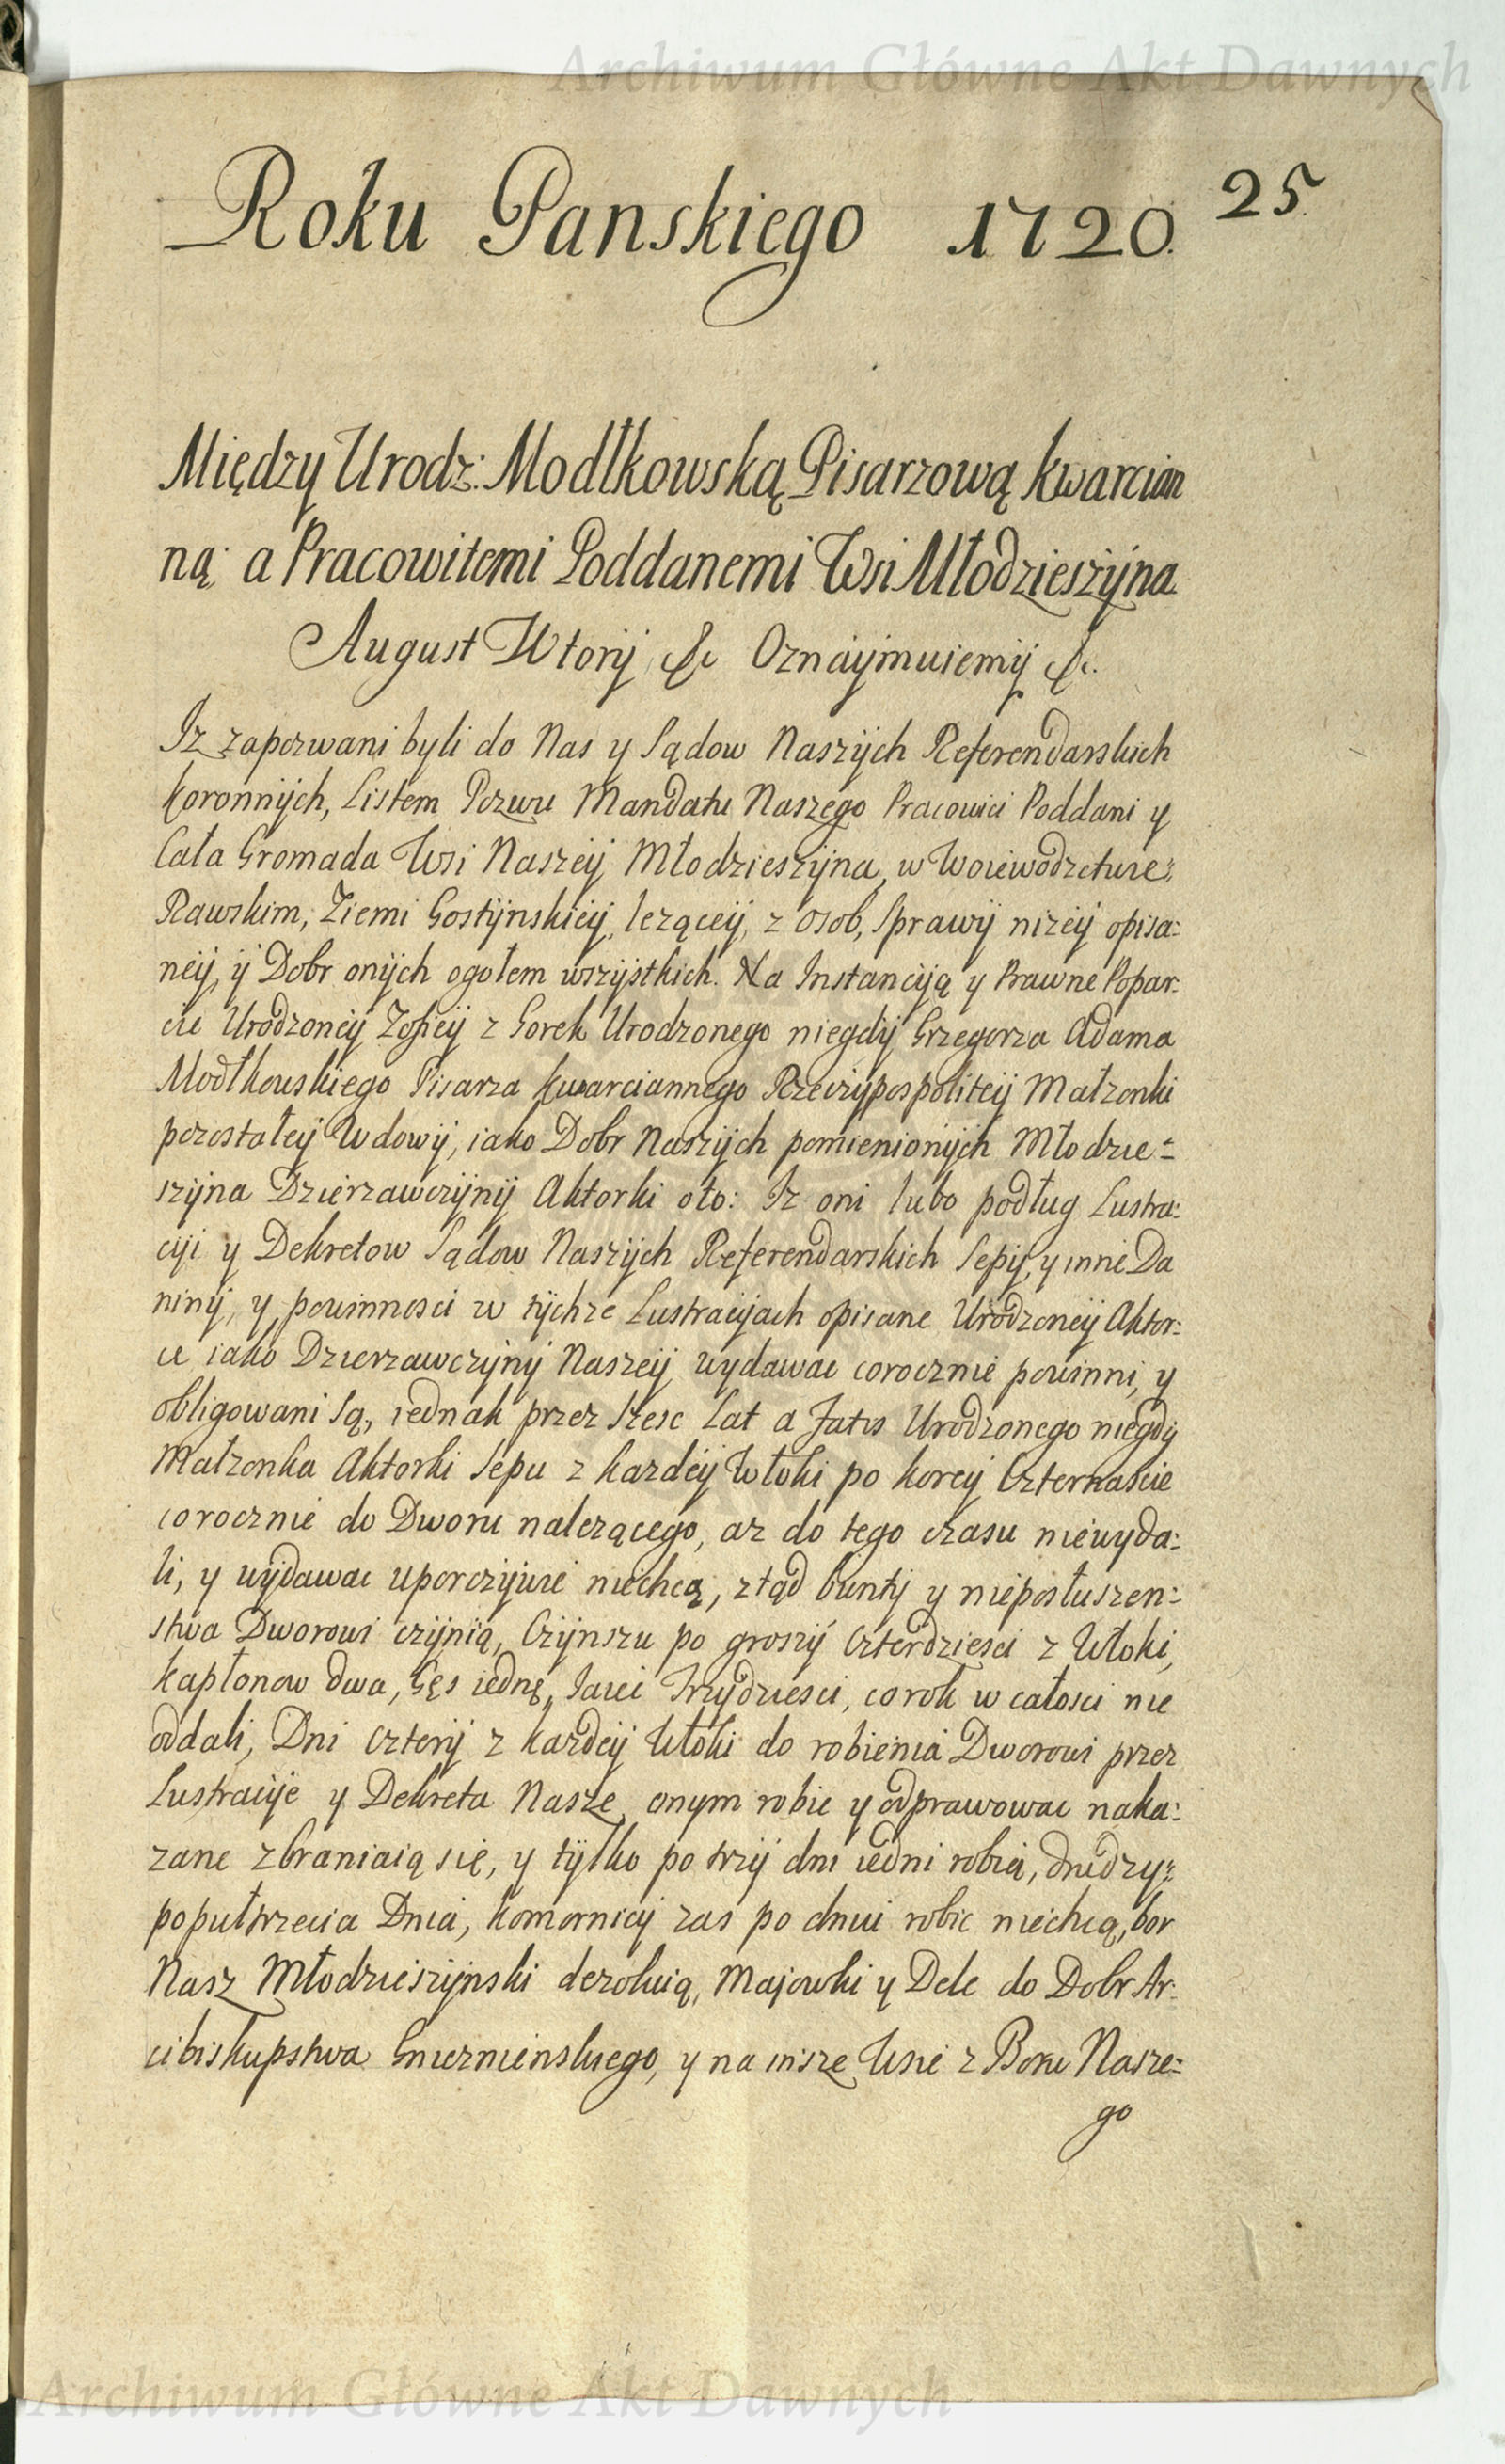 Archiwum Główne Akt Dawnych
Roku Panskiego 1720. 25.
Między Urodz: Modłkowską Pisarzową kwarcian
ną: a Pracowitemi Poddanemi Wsi Młodzieszyna
August Wtory &c Oznaymuiemy &c.
Iz zapozwani byli do Nas y Sądow Naszych Referendarskich
koronnych, Listem Pozwu Mandatu Naszego Pracowici Poddani y
Cała Gromada Wsi Naszey Młodzieszyna, w Woiewodztwie
Rawskim, Ziemi Gostynskiey, lezącey, z osob, sprawy nizey opisa:
ney, y Dobr onych ogołem wszystkich. Na Instancyją y Prawne Popar:
cie Urodzoney Zofiey z Gorek Urodzonego niegdy Grzegorza Adama
Modłkowskiego Pisarza kwarciannego Rzeczypospolitey Małzonki
pozostałey Wdowy, iako Dobr Naszych pomienionych Młodzie=
szyna Dzierzawczyny Aktorki oto: Iz oni lubo podług Lustra:
cyi y Dekretow Sądow Naszych Referendarskich Sepy, y inne Da
niny, y powinnosci w tychze Lustracyjach opisane Urodzoney Aktor:
ce iako Dzierzawczyny Naszey wydawac corocznie powinni, y
obligowani są, iednak przez szesc Lat a Fatis Urodzonego niegdy
Małzonka Aktorki Sepu z kazdey Włoki po korcy Czternascie
corocznie do Dworu nalezącego, az do tego czasu niewyda:
li, y wydawac uporczywie niechcą, ztąd bunty y niepostuszen:
stwa Dworowi czynią, Czynszu po groszy Czterdziesci z Włoki,
kapłonow dwa, Gęs iednę, Iaiec Trzydziesci, corok w całosci nie
oddali, Dni cztery z kazdey Włoki do robienia Dworowi przez
Lustracyje y Dekreta Nasze onym robic y odprawowac naka:
zane zbraniaią się, y tylko po trzy dni iedni robią, drudzy:
popułtrzecia Dnia, komornicy zas po dniu robic niechcą, bor
Nasz Młodzieszynski dezoluią, Majowki y Dele do Dobr Ar:
cibiskupstwa Gnieznienskiego, y na insze Wsie z Boru Nasze:
go
Archiwum Główne Akt Dawnych